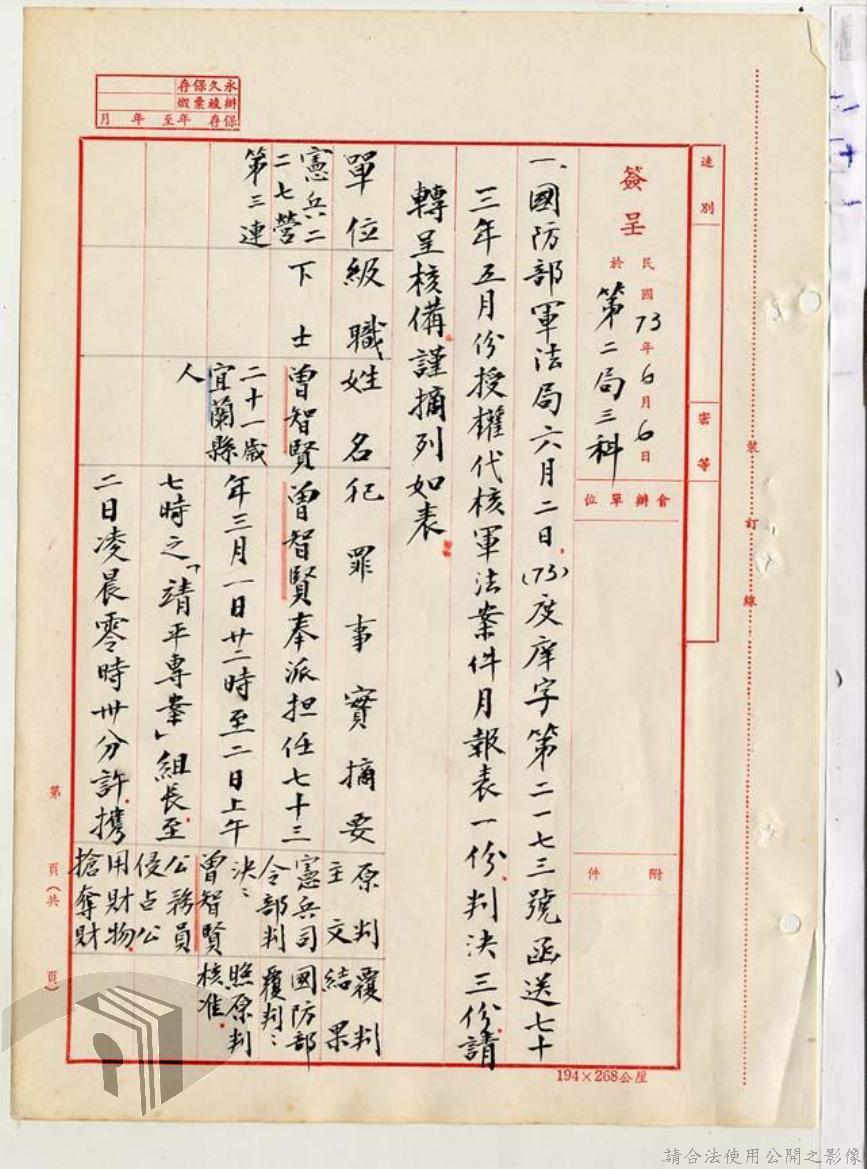 永久保存
辦竣彙繳
保存 年至 年 月
速別
密等
簽呈
民國73年6月6日
於第二局三科
會辦單位
附件
一、國防部軍法局六月二日(73)度庠字第二一七三號函送七十
三年五月份授權代核軍法案件月報表一份判決三份請
轉呈核備謹摘列如表
單位
級職
姓名
犯罪事實摘要
原判主文
覆判結果
憲兵二
二七營
第三連
下士
曾智賢
二十一歲
宜蘭縣
人
曾智賢奉派担任七十三
年三月一日廿二時至二日上午
七時之「靖平專案」組長至
二日凌晨零時卅分許携
憲兵司
令部判
決:
曾智賢
公務員
侵占公
用財物
搶奪財
國防部
覆判:
照原判
核准
裝訂線
第 頁(共 頁)
194×268公厘
請合法使用公開之影像